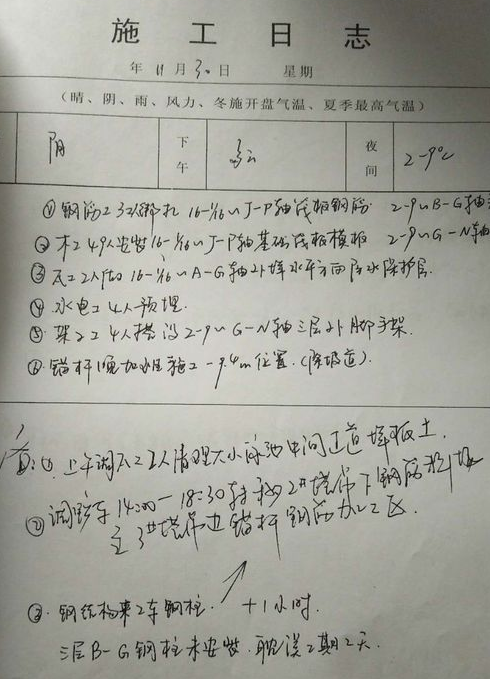 施工日志
年 11月30日 星期
（晴、阴、雨、风力、冬施开盘气温、夏季最高气温）
阴 下午 多云 夜间 2-9℃
①钢筋工32人绑扎 16-1/16~J-P轴筏板钢筋 2-9~B-G轴
②木工49人安装16-1/16~J-P轴基础筏板模板 2-9~G-N轴
③瓦工2人做16-1/16~A-G轴外墙水平方向防水保护层.
④水电工4人预埋.
⑤架子工4人搭设2-9~G-N轴三层外脚手架.
⑥锚杆 施工-9.4m位置.(除坡道).
①上午调瓦工2人清理大小泳池中间 堆板土.
② 14:00-18:30 2#塔吊下钢筋
至3#塔吊边锚杆钢筋加工区.
③.钢结构来2车钢柱. +1小时.
三层B-G钢柱未安装.耽误工期2天.